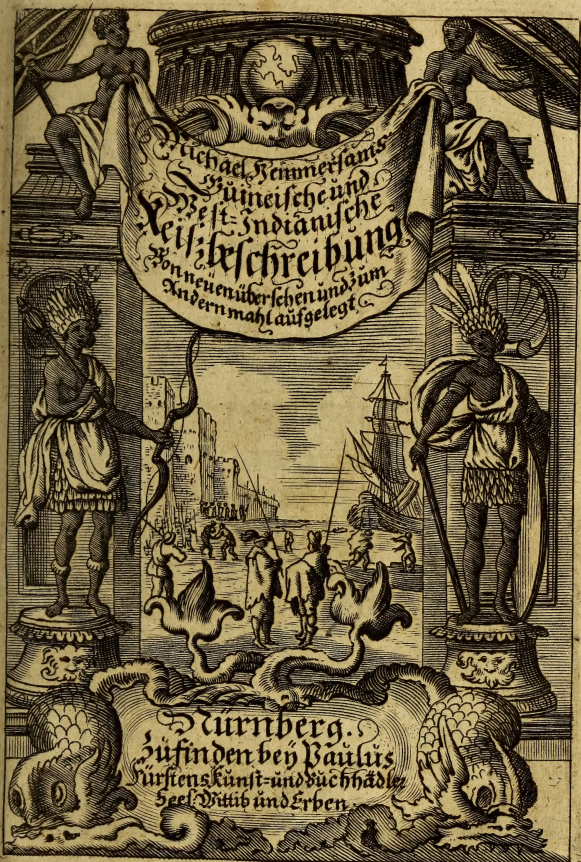 Michael Hemmersams
Guineische und
West-Indianische
Reiszbeschreibung
Von neuen übersehen und zum
Andern mahl aufgelegt
Nürnberg.
Zufinden beÿ Paulus
Fürstens Kunst-und Buchhädler
Seel: Wittib und Erben.